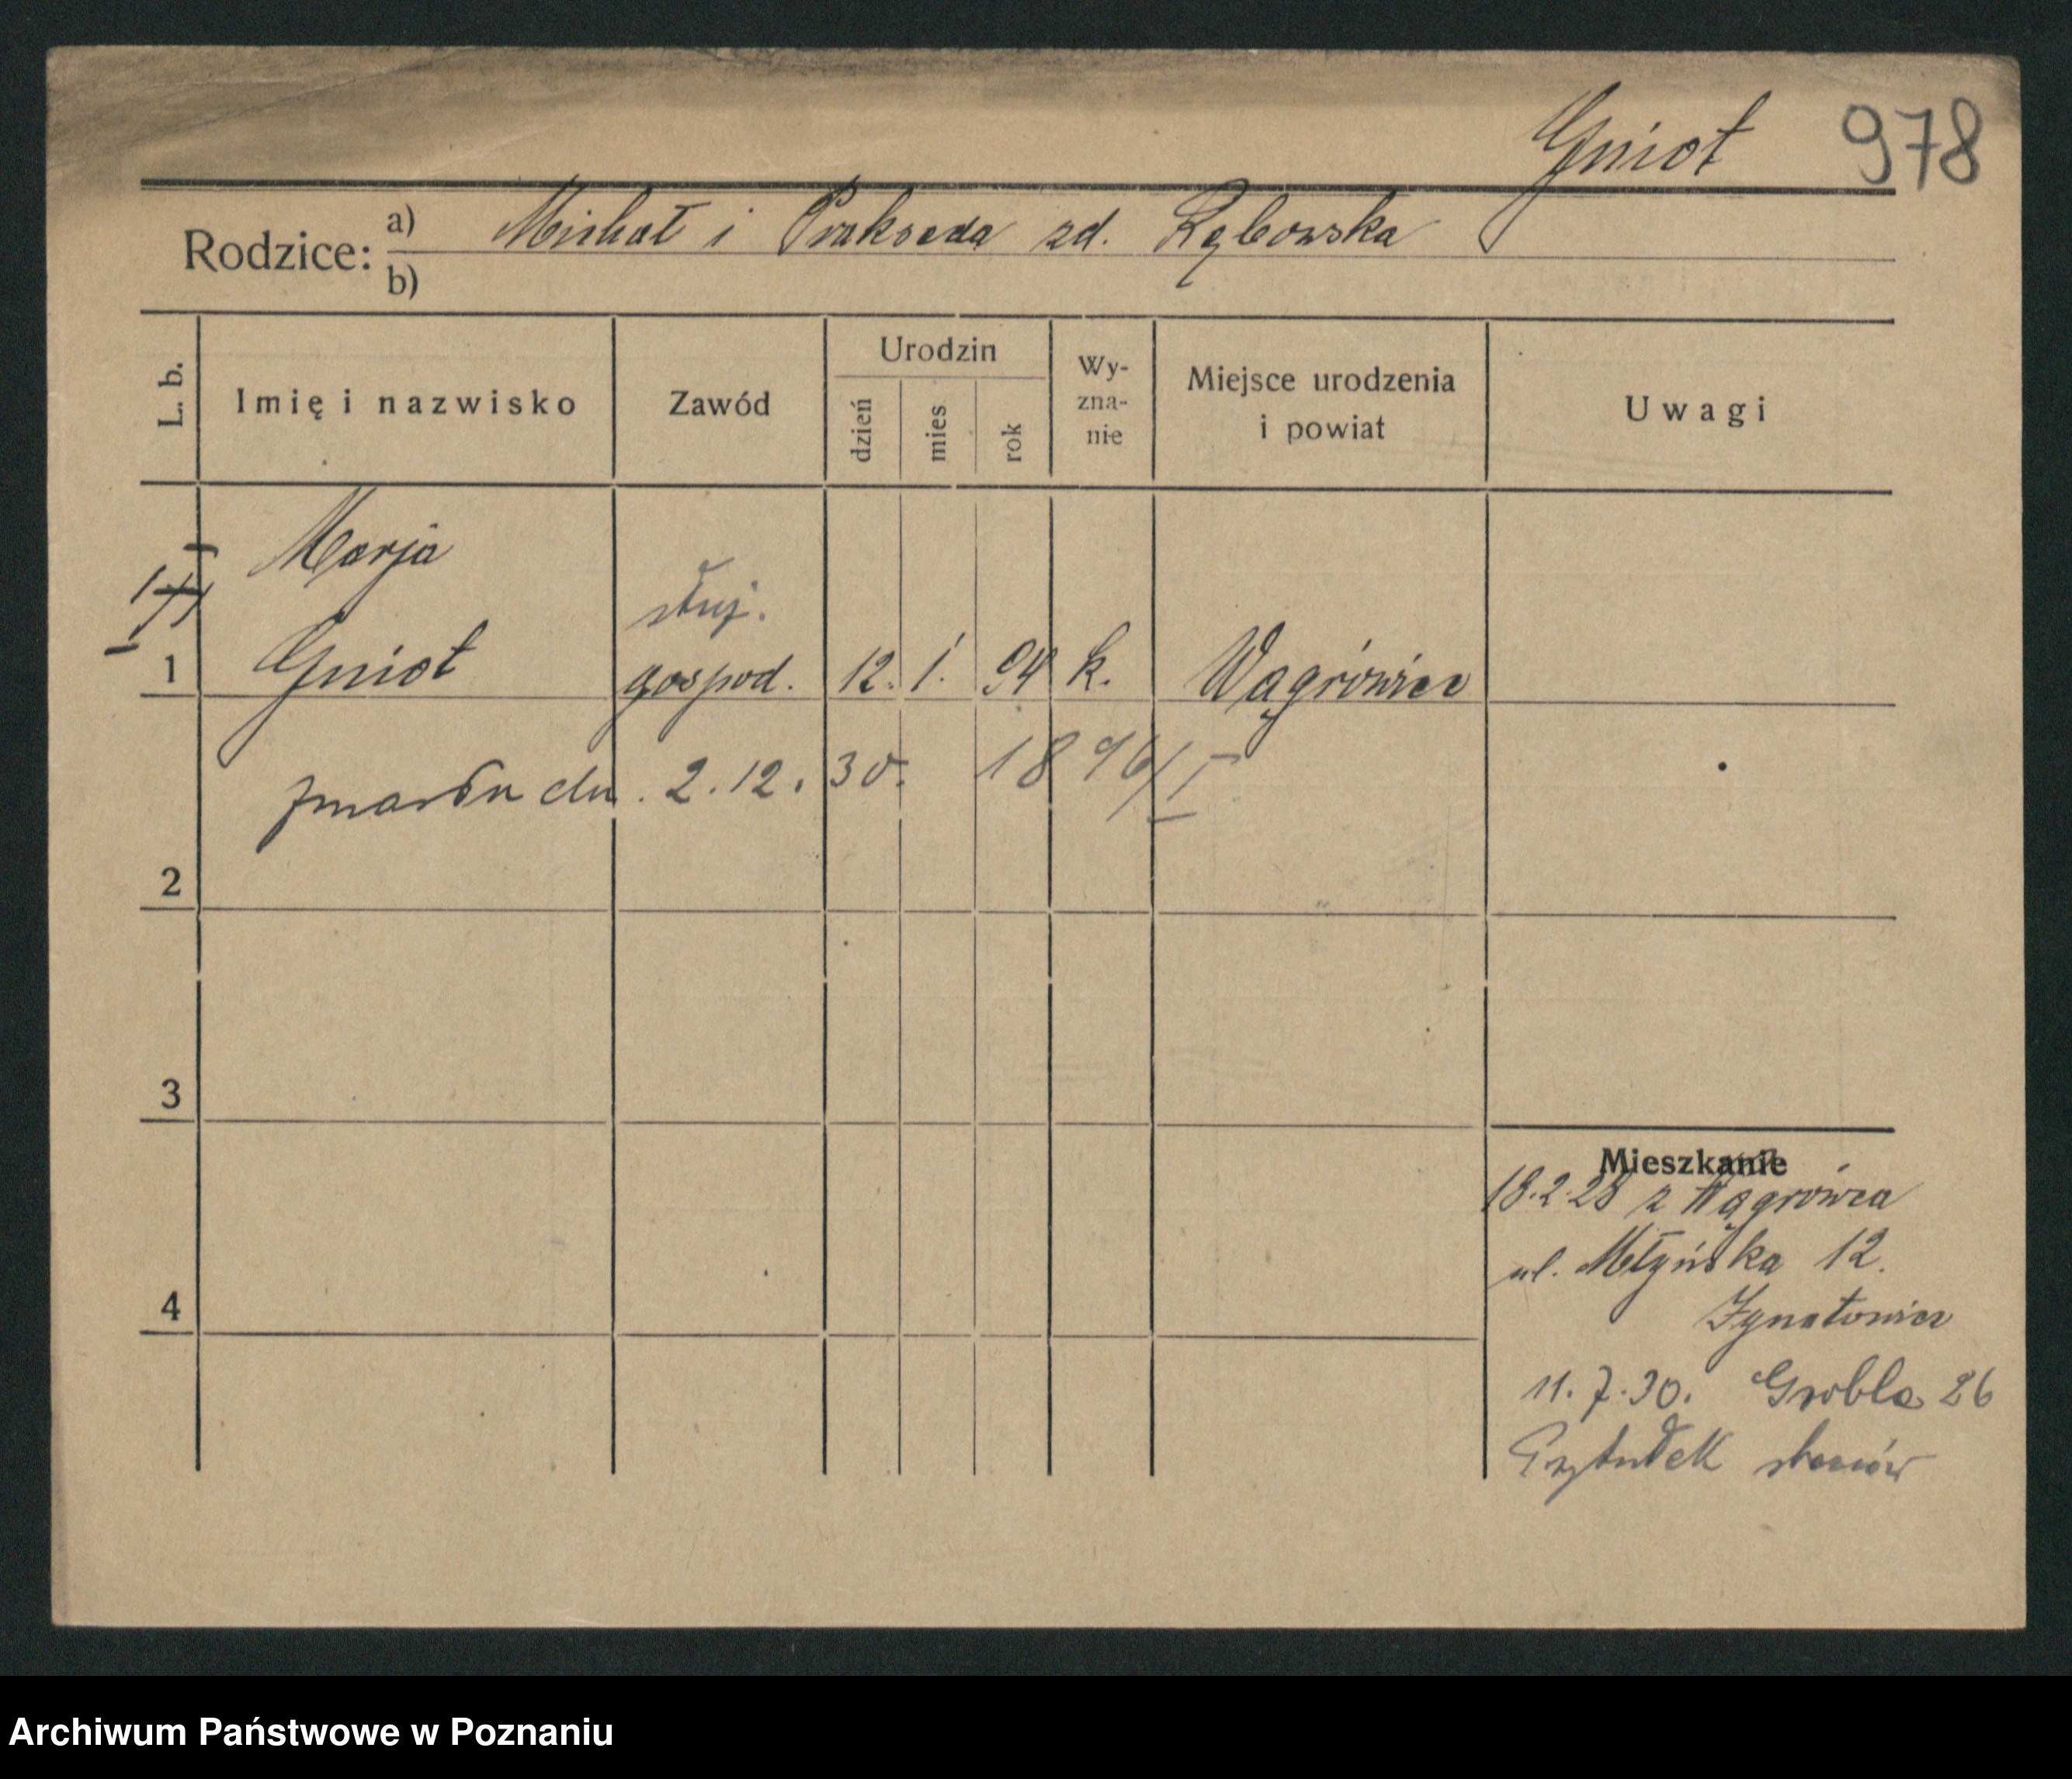 Gniot 978
Rodzice: a) Michał i Prakseda zd. Rębowska
b)
L. b. Imię i nazwisko Zawód Urodzin dzień mies rok Wy-zna-nie Miejsce urodzenia i powiat Uwagi
Marja
służ.
1 Gniot gospod. 12. 1. 94 k. Wągrówiec
zmarła dn. 2.12.30. 1896/I
2
3
4
Mieszkanie
18.2.28 z Wągrówca
ul. Młyńska 12.
11.7.30. Grobla 26
Przytułek starców
Archiwum Państwowe w Poznaniu